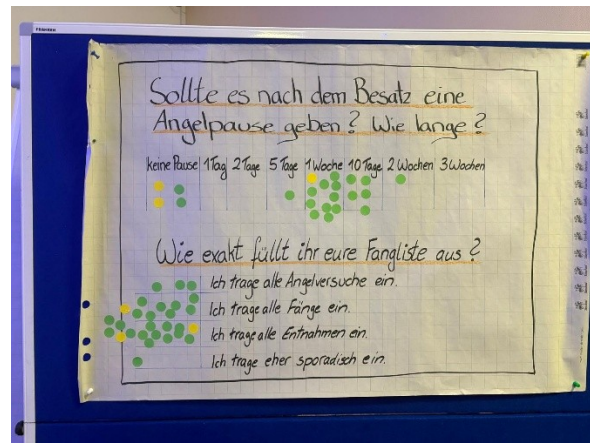 Sollte es nach dem Besatz eine
Angelpause geben? Wie lange?
keine Pause 1 Tag 2 Tage 5 Tage 1 Woche 10 Tage 2 Wochen 3 Wochen
Wie exakt füllt ihr eure Fangliste aus?
Ich trage alle Angelversuche ein.
Ich trage alle Fänge ein.
Ich trage alle Entnahmen ein.
Ich trage eher sporadisch ein.